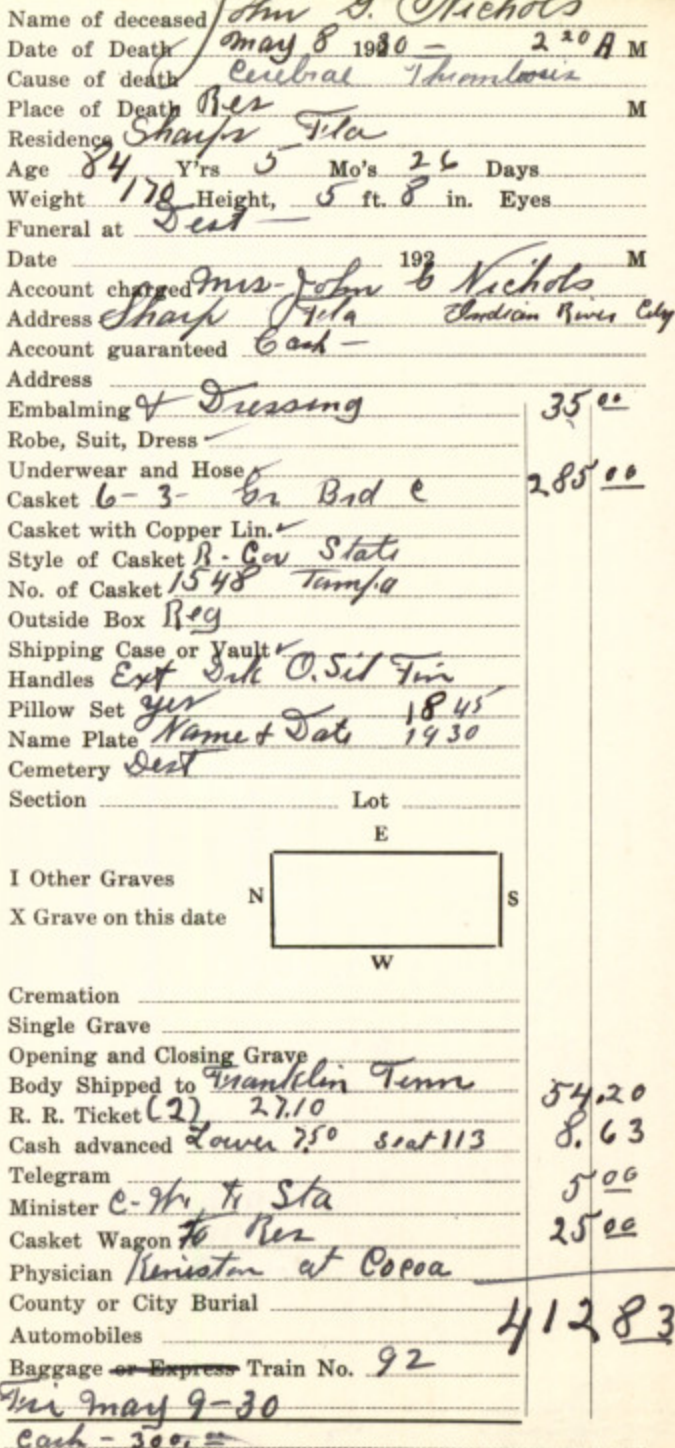 Name of deceased John G. Nichols
Date of Death May 8 1930 - 2 20 A M
Cause of death Cerebral Thrombosis
Place of Death Res M
Residence Sharps Fla
Age 84 Y'rs 5 Mo's 26 Days
Weight 170 Height, 5 ft. 8 in. Eyes
Funeral at Dest —
Date 192 M
Account charged Mrs - John G Nichols
Address Sharps Fla Indian River City
Account guaranteed Cash —
Address
Embalming & Dressing 35 00
Robe, Suit, Dress
Underwear and Hose
Casket 6 - 3 - Gr Brd C 285 00
Casket with Copper Lin.
Style of Casket R - Gov State
No. of Casket 1548 Tampa
Outside Box Reg
Shipping Case or Vault
Handles Ext O. Sil Fin
Pillow Set yes 1845
Name Plate Name & Date 1930
Cemetery Dest
Section Lot
E
I Other Graves
N S
X Grave on this date
W
Cremation
Single Grave
Opening and Closing Grave
Body Shipped to Franklin Tenn
R. R. Ticket (2) 27.10 54.20
Cash advanced Lower 7.50 seat 113 8.63
Telegram
Minister C - W. to Sta 5 00
Casket Wagon to Res 25 00
Physician Keniston at Cocoa
County or City Burial
412 83
Automobiles
Baggage or Express Train No. 92
Fri May 9 - 30
Cash - 300.00